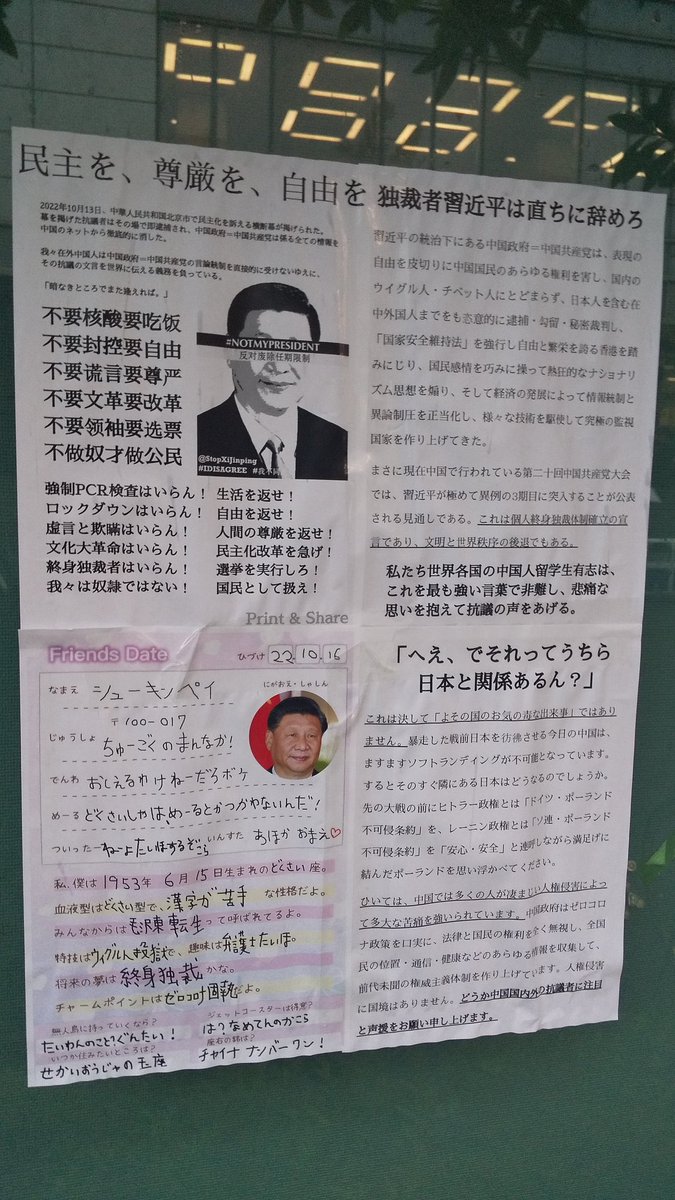 民主を、尊厳を、自由を
2022年10月13日、中華人民共和国北京市で民主化を訴える横断幕が掲げられた。
幕を掲げた抗議者はその場で即逮捕され、中国政府＝中国共産党は係る全ての情報を
中国のネットから徹底的に消した。
我々在外中国人は中国政府＝中国共産党の言論統制を直接的に受けないゆえに、
その抗議の文言を世界に伝える義務を負っている。
「暗なきところでまた逢えれば。」
不要核酸要吃饭
不要封控要自由
不要谎言要尊严
不要文革要改革
不要领袖要选票
不做奴才做公民
#NOTMYPRESIDENT
反对废除任期限制
@StopXiJinping
#IDISAGREE #我不同
強制PCR検査はいらん！ 生活を返せ！
ロックダウンはいらん！ 自由を返せ！
虚言と欺瞞はいらん！ 人間の尊厳を返せ！
文化大革命はいらん！ 民主化改革を急げ！
終身独裁者はいらん！ 選挙を実行しろ！
我々は奴隷ではない！ 国民として扱え！
Print & Share
独裁者習近平は直ちに辞めろ
習近平の統治下にある中国政府＝中国共産党は、表現の
自由を皮切りに中国国民のあらゆる権利を害し、国内の
ウイグル人・チベット人にとどまらず、日本人を含む在
中外国人までをも恣意的に逮捕・勾留・秘密裁判し、
「国家安全維持法」を強行し自由と繁栄を誇る香港を踏
みにじり、国民感情を巧みに操って熱狂的なナショナリ
ズム思想を煽り、そして経済の発展によって情報統制と
異論制圧を正当化し、様々な技術を駆使して究極の監視
国家を作り上げてきた。
まさに現在中国で行われている第二十回中国共産党大会
では、習近平が極めて異例の3期目に突入することが公表
される見通しである。これは個人終身独裁体制確立の宣
言であり、文明と世界秩序の後退でもある。
私たち世界各国の中国人留学生有志は、
これを最も強い言葉で非難し、悲痛な
思いを抱えて抗議の声をあげる。
Friends Date
ひづけ 22.10.16
なまえ シューキンペイ
にがおえ・しゃしん
〒100-017
じゅうしょ ちゅーごくのまんなか！
でんわ おしえるわけねーだろボケ
めーる どくさいしゃはめーるとかつかわないんだ！
ついったー ねーよたいほするぞこら いんすた あほか おまえ♡
私、僕は1953年6月15日生まれのどくさい座。
血液型はどくさい型で、漢字が苦手な性格だよ。
みんなからは毛沢東転生って呼ばれてるよ。
特技はウイグル人投獄で、趣味は弁護士たいほ。
将来の夢は終身独裁かな。
チャームポイントはゼロコロナ固執だよ。
無人島に持っていくなら？
たいわんのこと？ぐんたい！
ジェットコースターは得意？
は？なめてんのかこら
いつか住みたいところは？
せかいおうじゃの玉座
座右の銘は？
チャイナ ナンバーワン！
「へえ、でそれってうちら
日本と関係あるん？」
これは決して「よその国のお気の毒な出来事」ではあり
ません。暴走した戦前日本を彷彿させる今日の中国は、
ますますソフトランディングが不可能となっています。
するとそのすぐ隣にある日本はどうなるのでしょうか。
先の大戦の前にヒトラー政権とは「ドイツ・ポーランド
不可侵条約」を、レーニン政権とは「ソ連・ポーランド
不可侵条約」を「安心・安全」と連呼しながら満足げに
結んだポーランドを思い浮かべてください。
ひいては、中国では多くの人が凄まじい人権侵害によっ
て多大な苦痛を強いられています。中国政府はゼロコロ
ナ政策を口実に、法律と国民の権利を全く無視し、全国
民の位置・通信・健康などのあらゆる情報を収集して、
前代未聞の権威主義体制を作り上げています。人権侵害
に国境はありません。どうか中国国内外の抗議者に注目
と声援をお願い申し上げます。